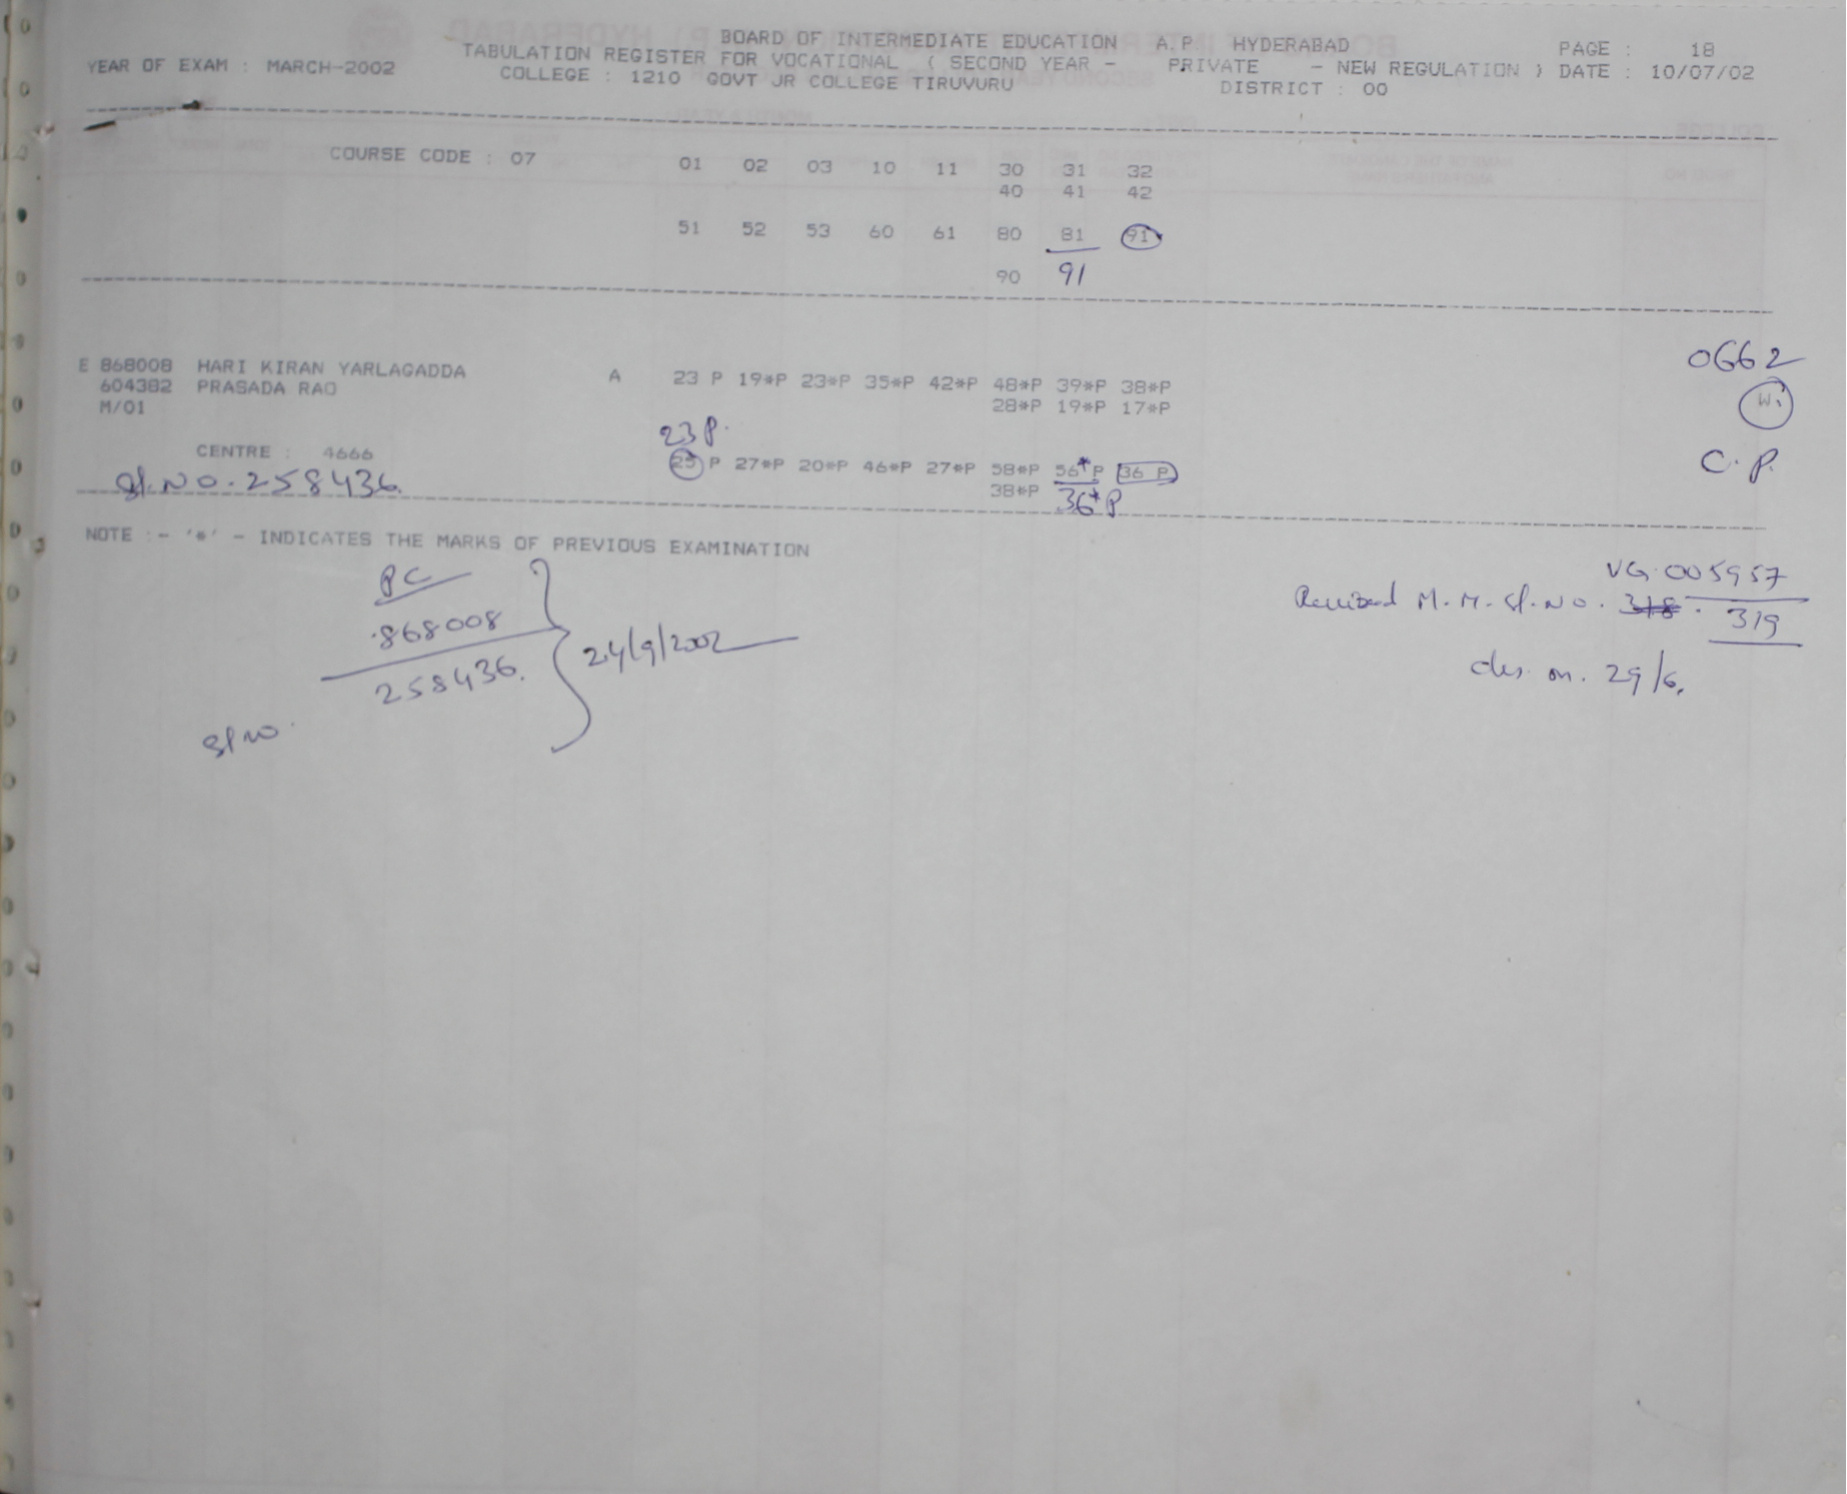 BOARD OF INTERMEDIATE EDUCATION A.P HYDERABAD PAGE : 18
YEAR OF EXAM : MARCH-2002 TABULATION REGISTER FOR VOCATIONAL ( SECOND YEAR - PRIVATE - NEW REGULATION ) DATE : 10/07/02
COLLEGE : 1210 GOVT JR COLLEGE TIRUVURU DISTRICT : 00
COURSE CODE : 07 01 02 03 10 11 30 31 32
40 41 42
51 52 53 60 61 80 81 91
90 91
E 868008 HARI KIRAN YARLAGADDA A 23 P 19*P 23*P 35*P 42*P 48*P 39*P 38*P
604382 PRASADA RAO 28*P 19*P 17*P
M/01
0662
W.
23 P.
CENTRE : 4666 25 P 27*P 20*P 46*P 27*P 58*P 56*P 36 P
C.P.
Sl.No.258436. 38*P 36*P
NOTE :- '*' - INDICATES THE MARKS OF PREVIOUS EXAMINATION
PC
868008
258436.
Sl no.
24/9/2002
VG.005957
Revised M.M.Sl.No. 318. 319
on. 29/6.